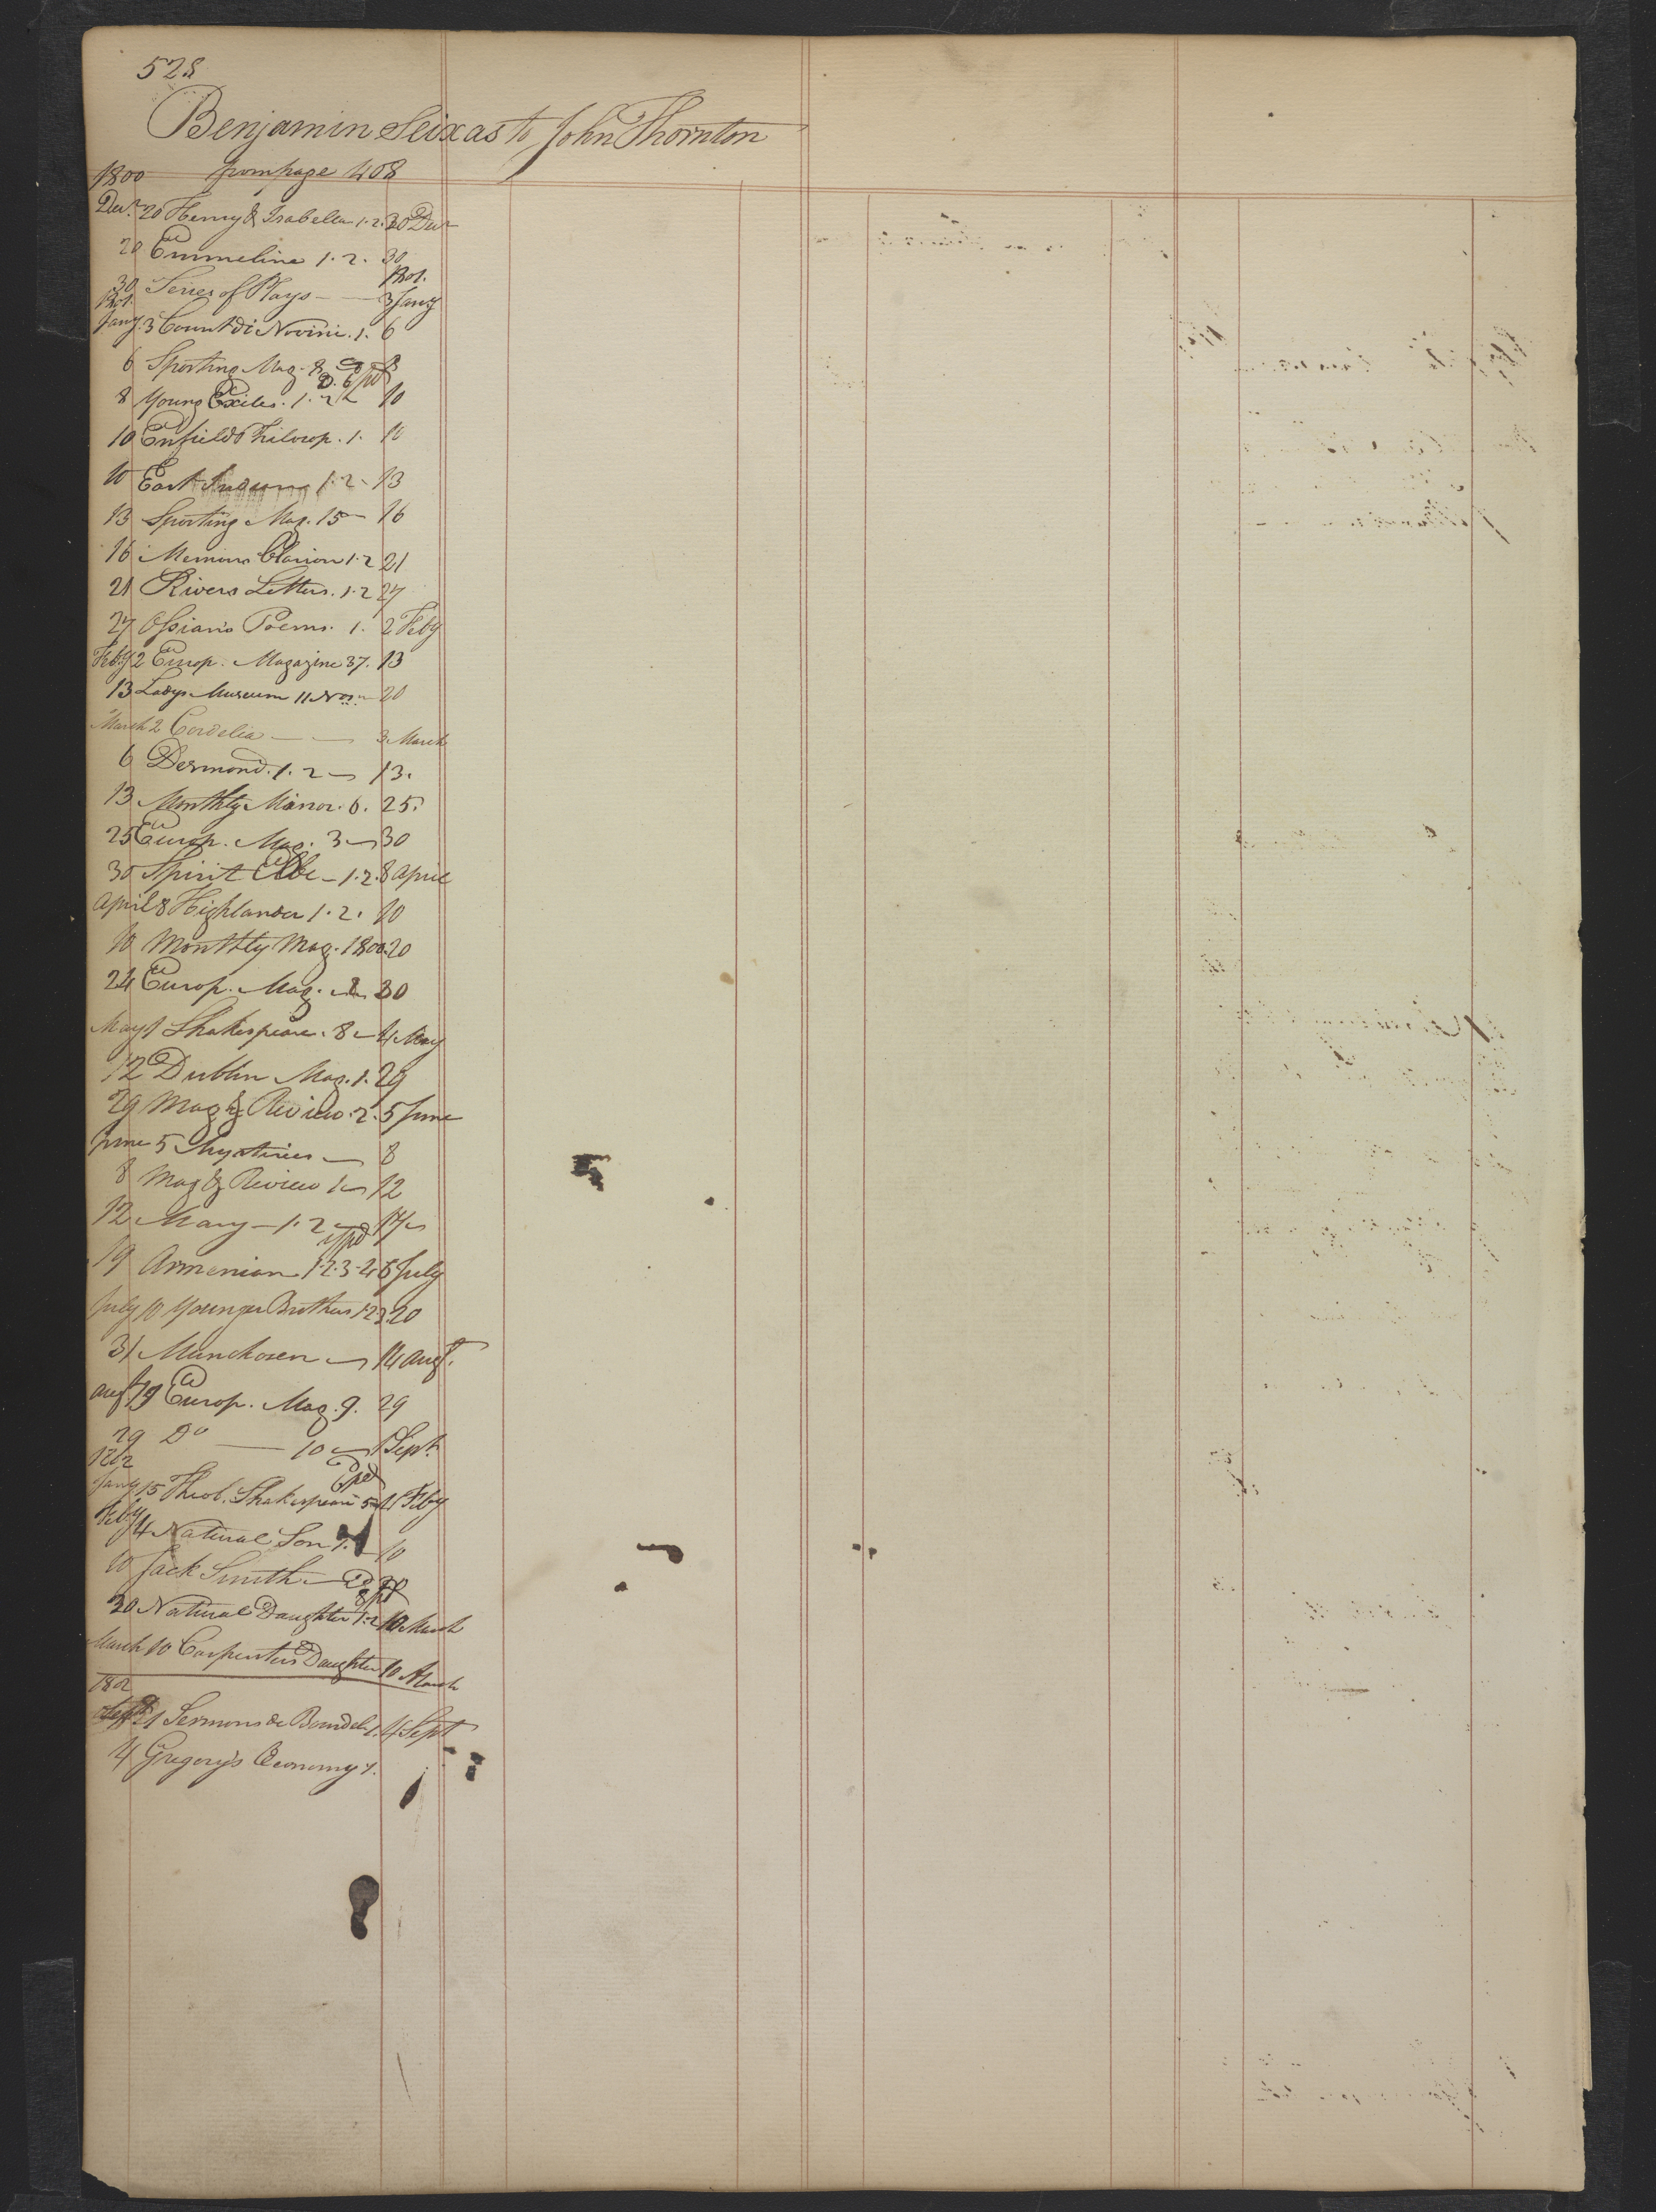 528
Benjamin Seixas to John Thornton
1800 from page 408
Decr 20 Henry & Isabella 1.2. 20 Decr
20 Emmeline 1.2. 30
1801.
30 Series of Plays — 3 Jany
1801.
Jany. 3 Count di Novini. 1. 6
6 Sporting Mag. 8
8 Young Exiles. 1.2 10
10 Enfields Philosop. 1. 10
10 East Indian 1.2 - 13
13 Sporting Mag. 15 — 16
16 Memoirs Clarion 1.2 21
21 Rivers Letters. 1.2 27
27 Ossian's Poems. 1. 2 Feby
Feby 2 Europ. Magazine 37. 13
13 Ladys Museum 11 Nos — 20
March 2 Cordelia — — 3 March
6 Desmond. 1.2 — 13.
13 Monthly Mirror. 6. 25.
25 Europ. Mag. 3 — 30
30 Spirit Elbe — 1.2. 8 April
April 8 Highlander 1.2. 10
10 Monthly Mag. 1800. 20
24 Europ. Mag. 30
May 1 Shakespeare. 8 — 4 May
12 Dublin Mag. 1. 29
29 Mag & Review. 2. 5 June
June 5 Mysteries — 8
8 Mag & Review 1 — 12
12 Mary — 1.2 — 17
19 Armenian 1.2.3.4 6 July
July 10 Younger Brothers 1.2.3. 20
31 Munchosen — 14 Augt.
Augt. 19 Europ. Mag. 9. 29
29 Do — 10 — 1 Sept.
1802
6 pd
Jany 15 Theob. Shakespeare 5 — 4 Feby
Feby 4 Natural Son 1. — 10
10 Jack Smith — 20
20 Natural Daughter 1.2 10 March
March 10 Carpenters Daughter 10 March
1802
21 Sermons de 1. 4 Sept
4 Gregory's Economy 1.